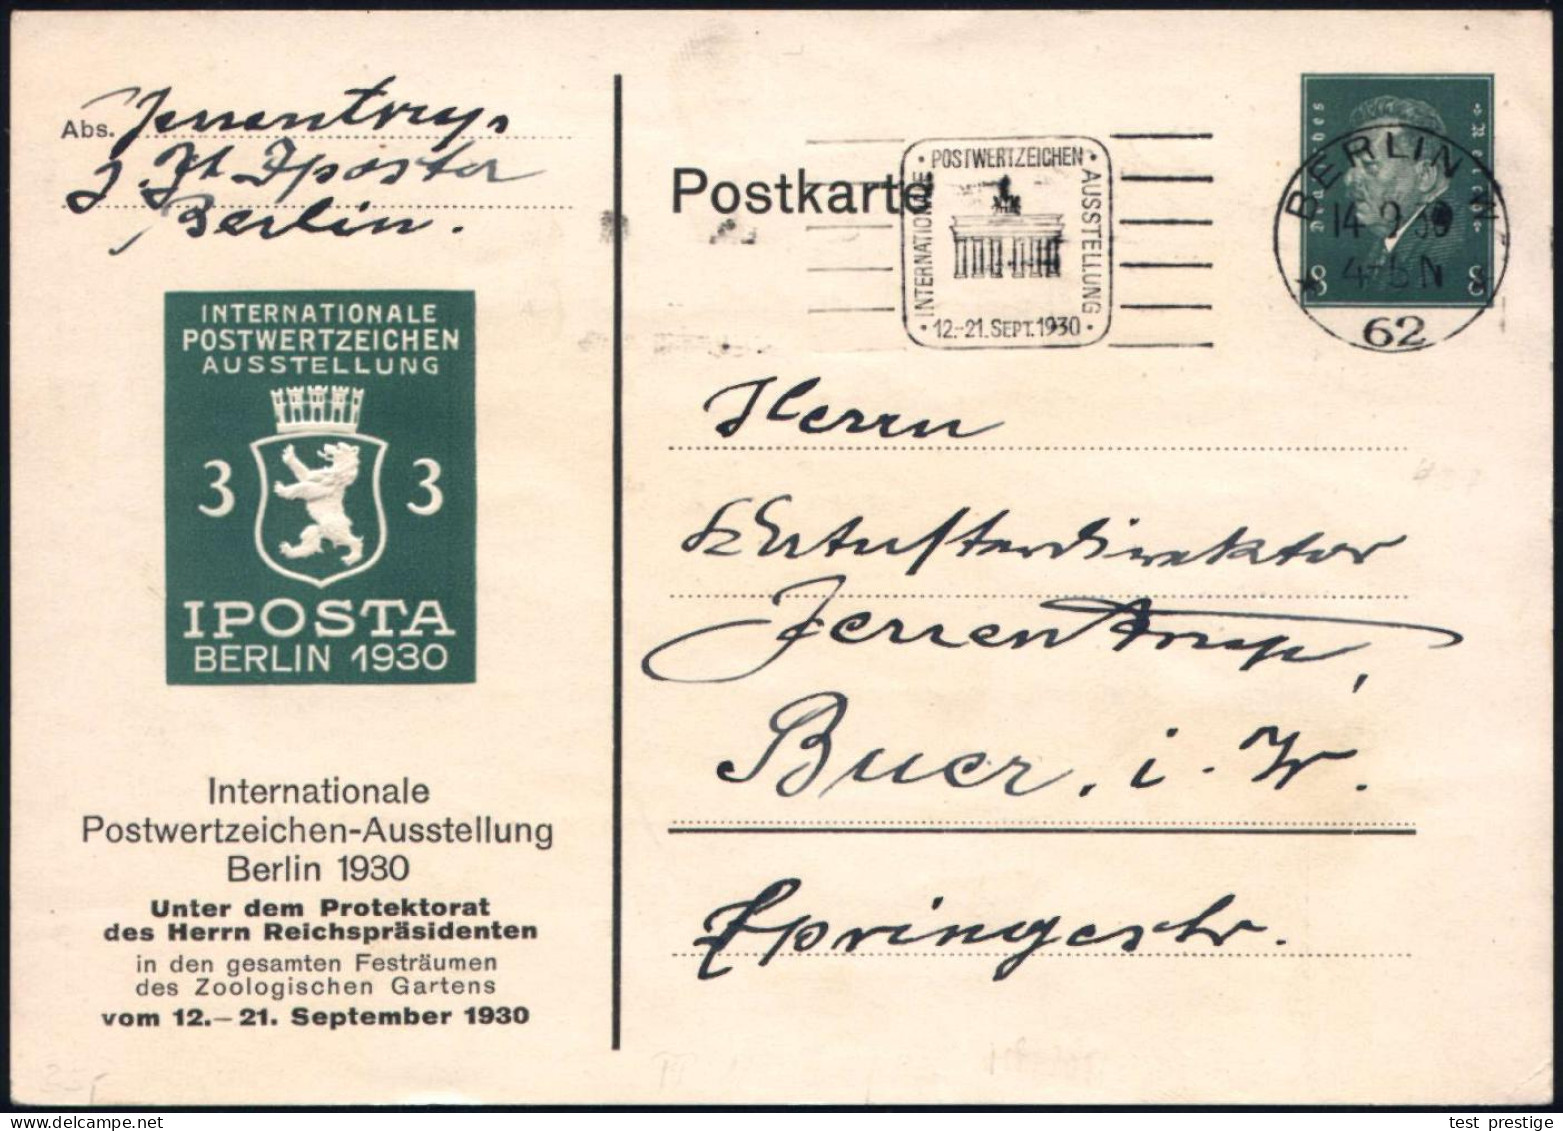 Abs. Jerrentrup,
z. Zt. Iposta
Berlin.
INTERNATIONALE
POSTWERTZEICHEN
AUSSTELLUNG
3 3
IPOSTA
BERLIN 1930
Internationale
Postwertzeichen-Ausstellung
Berlin 1930
Unter dem Protektorat
des Herrn Reichspräsidenten
in den gesamten Festräumen
des Zoologischen Gartens
vom 12.–21. September 1930
Postkarte
INTERNATIONALE
· POSTWERTZEICHEN ·
AUSSTELLUNG
· 12.-21. SEPT. 1930 ·
Deutsches Reich
8 8
BERLIN W
14.9.30
4-5 N
62
Herrn
Jerrentrup,
Buer. i. W.
Springestr.
test prestige